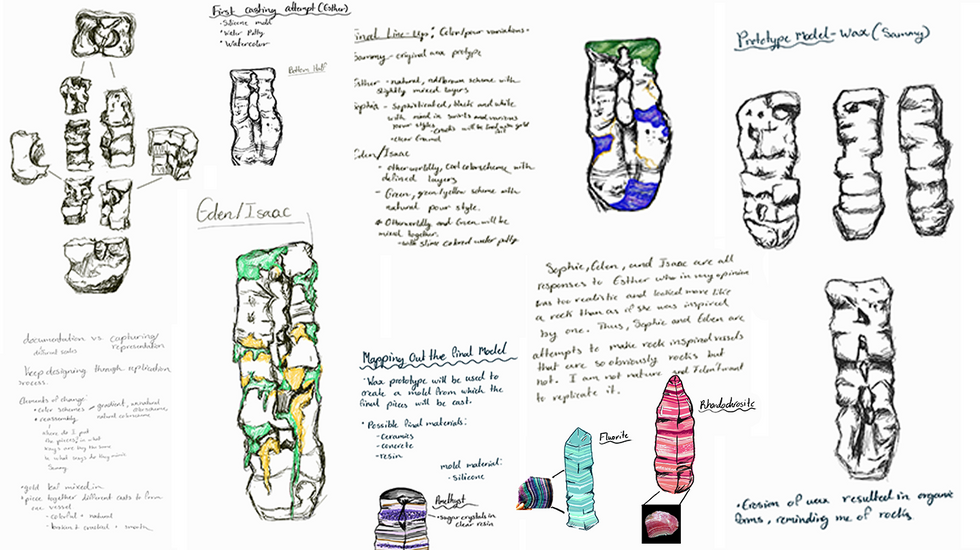 First casting attempt (Esther)
• Silicone mold
• Water Putty
• Watercolor
Pattern Half
Final Line-Ups: Color/pour variations.
Sammy - original wax
Esther - natural, scheme with
slightly mixed layers
Sophie - Sophisticated, black and white
with sand in swirls and various
pour styles
• clear
Eden/Isaac
- otherworldly, cool colorscheme with
defined layers
- Green, green/yellow scheme with
natural pour style.
* Otherworldly and Green will be
mixed together.
- with slime colored water putty
Prototype Model - Wax (Sammy)
Eden/Isaac
Sophie, Eden, and Isaac are all
responses to Esther who in my opinion
was too realistic and looked more like
a rock than as if she was inspired
by one. Thus, Sophie and Eden are
attempts to make rock inspired vessels
that are so obviously rocks but
not. I am not nature and I don't want
to replicate it.
documentation vs capturing/
representation
Keep designing through replication
process.
Elements of change:
• color schemes - gradient, unnatural
natural colorscheme
• reassembly
where do I put
the pieces, in what
ways are they the same
in what ways do they
Sammy
• gold leaf mixed in
• piece together different casts to form
one vessel
- colorful + natural
- broken + smooth
Mapping Out the Final Model
• Wax prototype will be used to
create a mold from which the
final pieces will be cast.
• Possible final materials:
- ceramics
- concrete
- resin
mold material:
- silicone
Amethyst
• sugar crystals in
clear resin
Fluorite
Rhodochrosite
• Erosion of wax resulted in organic
forms, reminding me of rocks.